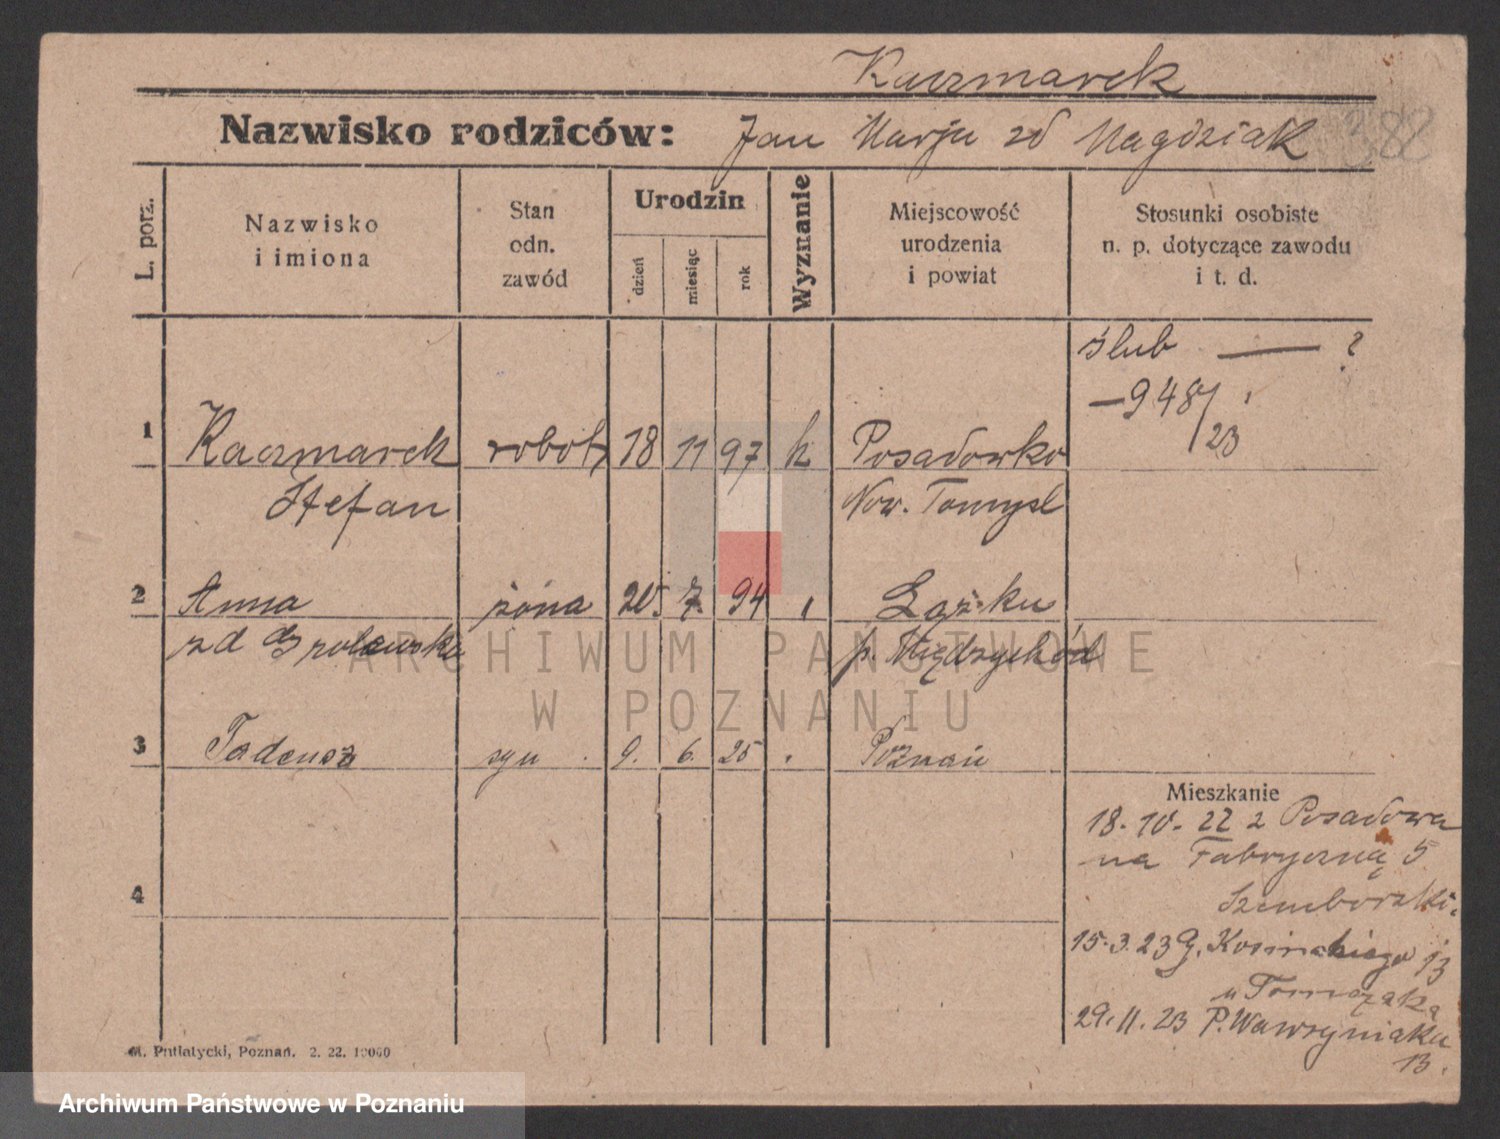 Kaczmarek
Nazwisko rodziców: Jan Marja zd Magdziak 388
L. porz.
Nazwisko i imiona
Stan odn. zawód
Urodzin
dzień
miesiąc
rok
Wyznanie
Miejscowość urodzenia i powiat
Stosunki osobiste n. p. dotyczące zawodu i t. d.
ślub — ?
— 948/23
1 Kaczmarek robotn 18 11 97 k Posadowko
Stefan Now. Tomysl
2 Anna żona 25 7. 94 Łężku
zd p. Międzychód
3 Tadeusz syn 9. 6. 25 Poznań
Mieszkanie
18. 10. 22 z Posadowa
na Fabryczną 5
4
15. 3. 23 G. 13
u Tomczaka
29. 11. 23 P. Wawrzyniaka
13.
M. Putiatycki, Poznań. 2. 22. 10000
ARCHIWUM PAŃSTWOWE
W POZNANIU
Archiwum Państwowe w Poznaniu